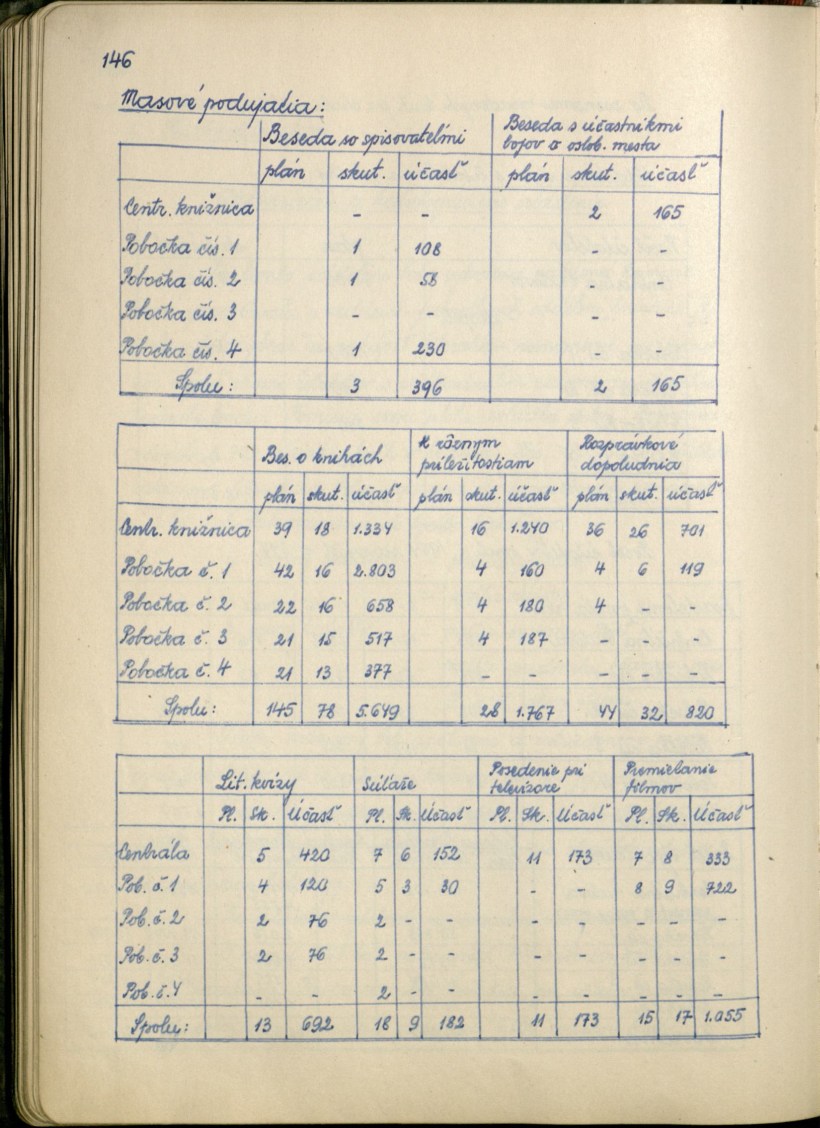 146
Masové podujatia:
Beseda so spisovateľmi Beseda s účastníkmi
bojov o oslob. mesta
plán skut. účasť plán skut. účasť
Centr. knižnica - - 2 165
Pobočka čís. 1 1 108 - -
Pobočka čís. 2 1 58 - -
Pobočka čís. 3 - - - -
Pobočka čís. 4 1 230 -
Spolu: 3 396 2 165
Bes. o knihách K rôznym Rozprávkové
príležitostiam dopoludnia
plán skut. účasť plán skut. účasť plán skut. účasť
Centr. knižnica 39 18 1.334 16 1.240 36 26 701
Pobočka č. 1 42 16 2.803 4 160 4 6 119
Pobočka č. 2 22 16 658 4 180 4 - -
Pobočka č. 3 21 15 517 4 187 - - -
Pobočka č. 4 21 13 377 - - - - -
Spolu: 145 78 5.649 28 1.767 44 32 820
Lit. kvízy Súťaže Posedenie pri Premietanie
televízore filmov
Pl. Sk. Účasť Pl. Sk. Účasť Pl. Sk. Účasť Pl. Sk. Účasť
Centrála 5 420 7 6 152 11 173 7 8 333
Pob. č. 1 4 120 5 3 30 - - 8 9 722
Pob. č. 2 2 76 2 - - - - - - -
Pob. č. 3 2 76 2 - - - - - - -
Pob. č. 4 - - 2 - - - - - - -
Spolu: 13 692 18 9 182 11 173 15 17 1.055